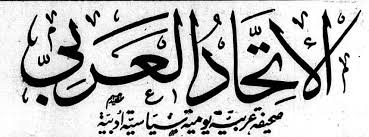 الإتحاد العربي
صحيفة عربية يومية سياسية أدبية